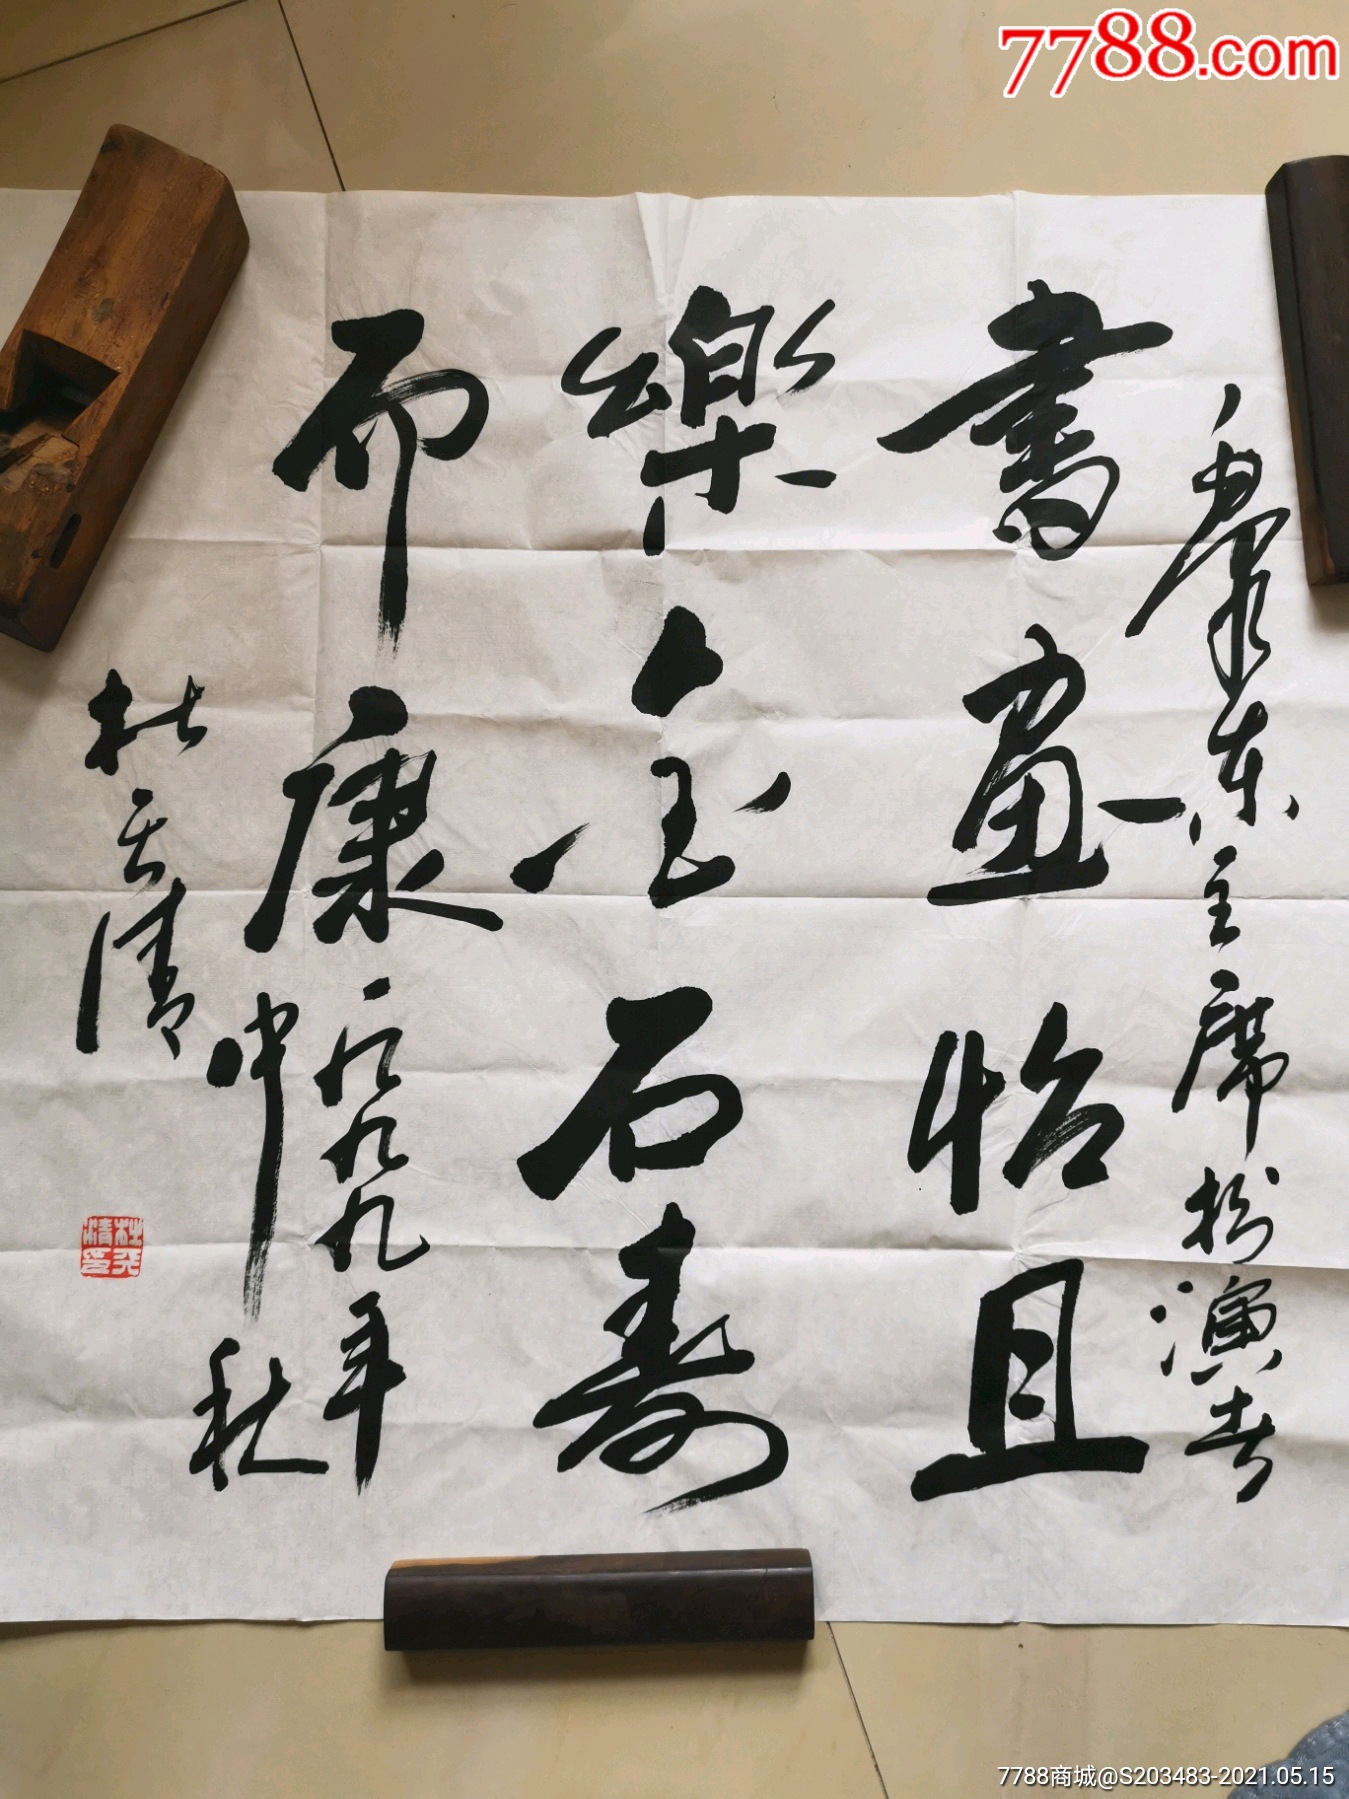 7788.com
毛澤东主席扮演者
書畫怡且
樂金石壽
而康一九九九年
中秋
杜天清
杜天清印
7788商城@S203483-2021.05.15